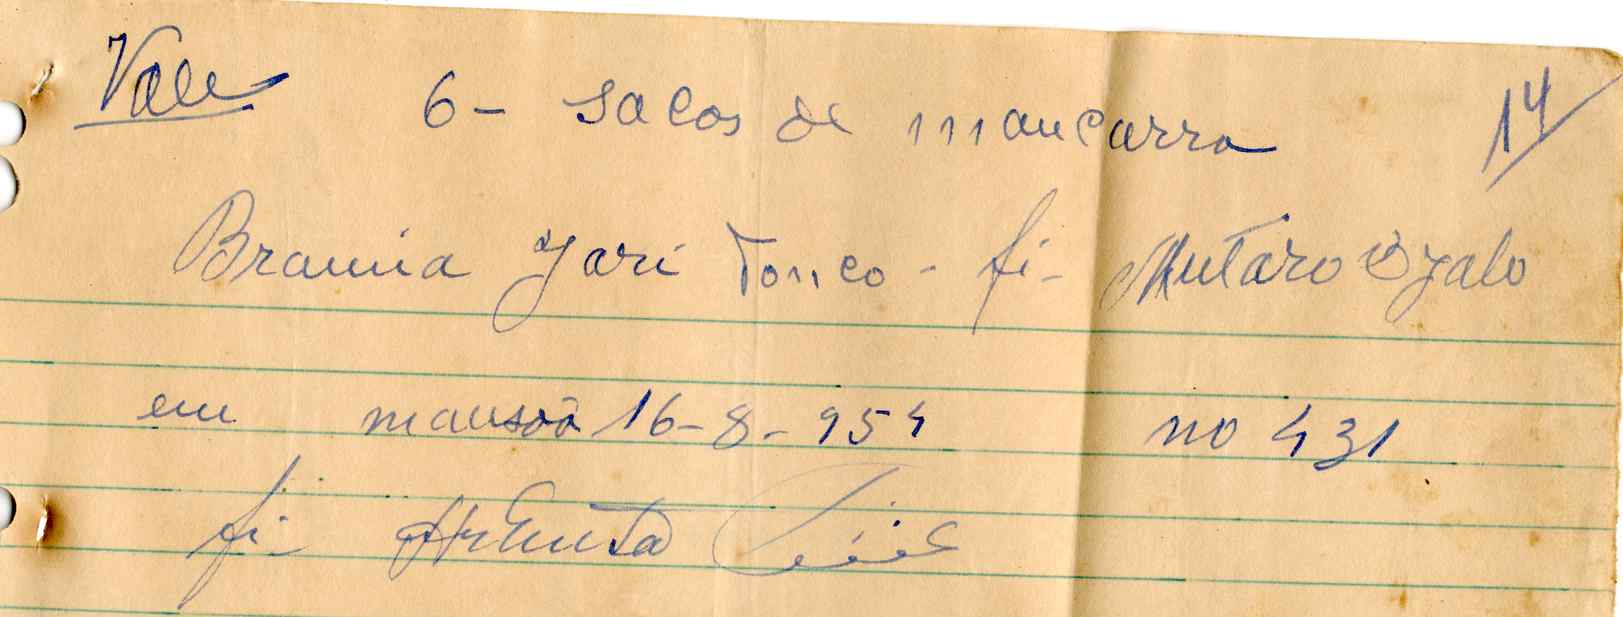 Vale 6- sacos de mancarra 14
Braima Jari Tonco - fi- Mutaro Djalo
em mansõa 16-8-954 no 431
fi-